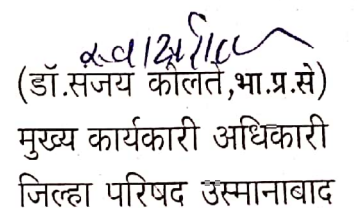 स्वाक्षरीत
(डॉ.संजय कोलते,भा.प्र.से)
मुख्य कार्यकारी अधिकारी
जिल्हा परिषद उस्मानाबाद